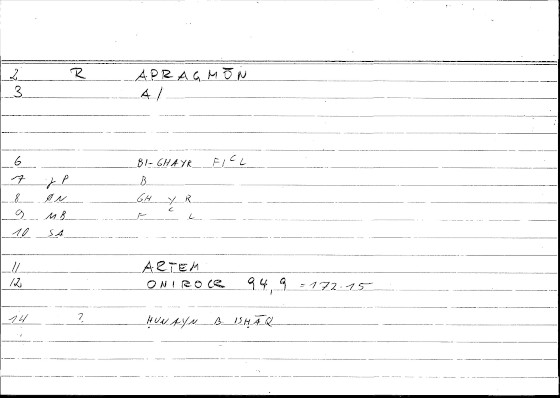 2 R APRAGMŌN
3 A/
6 BI-GHAYR FIᶜL
7 JP B
8 ØN GH Y R
9 MB F ᶜ L
10 SA
11 ARTEM
12 ONIROCR 94,9 = 172.15
14 ? ḤUNAYN B ISḤĀQ